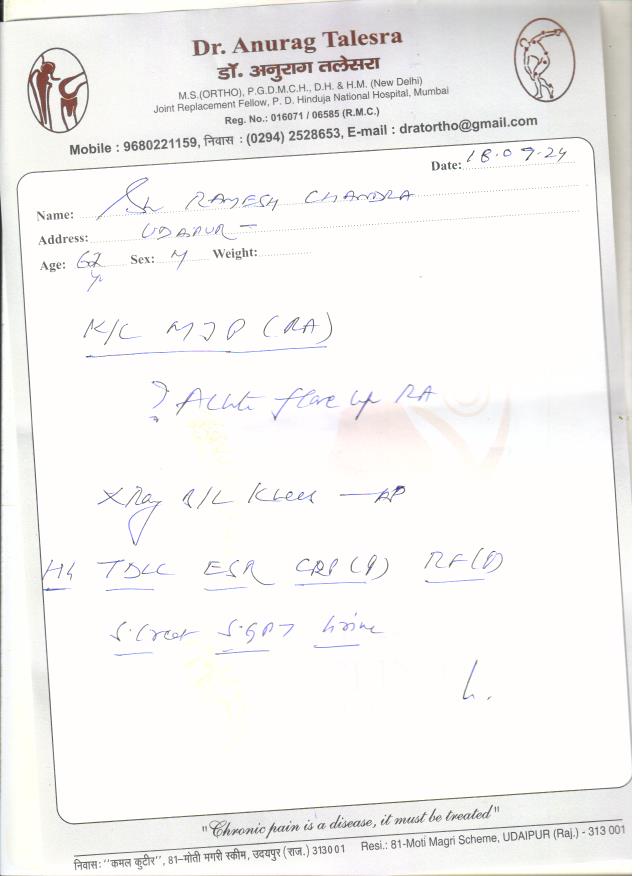 Dr. Anurag Talesra
डॉ. अनुराग तलेसरा
M.S.(ORTHO), P.G.D.M.C.H., D.H. & H.M. (New Delhi)
Joint Replacement Fellow, P. D. Hinduja National Hospital, Mumbai
Reg. No.: 016071 / 06585 (R.M.C.)
Mobile : 9680221159, निवास : (0294) 2528653, E-mail : dratortho@gmail.com
Date: 18.09.24
Name: Sh RAMESH CHANDRA
Address: UDAIPUR
Age: 62 yr Sex: M Weight:
K/C MJP (RA)
? Acute flare up RA
X Ray B/L Knees — AP
Hb TDLC ESR CRP (Q) RF (Q)
S. Creat SGPT Urine
"Chronic pain is a disease, it must be treated"
निवास: "कमल कुटीर", 81-मोती मगरी स्कीम, उदयपुर (राज.) 313001 Resi.: 81-Moti Magri Scheme, UDAIPUR (Raj.) - 313 001